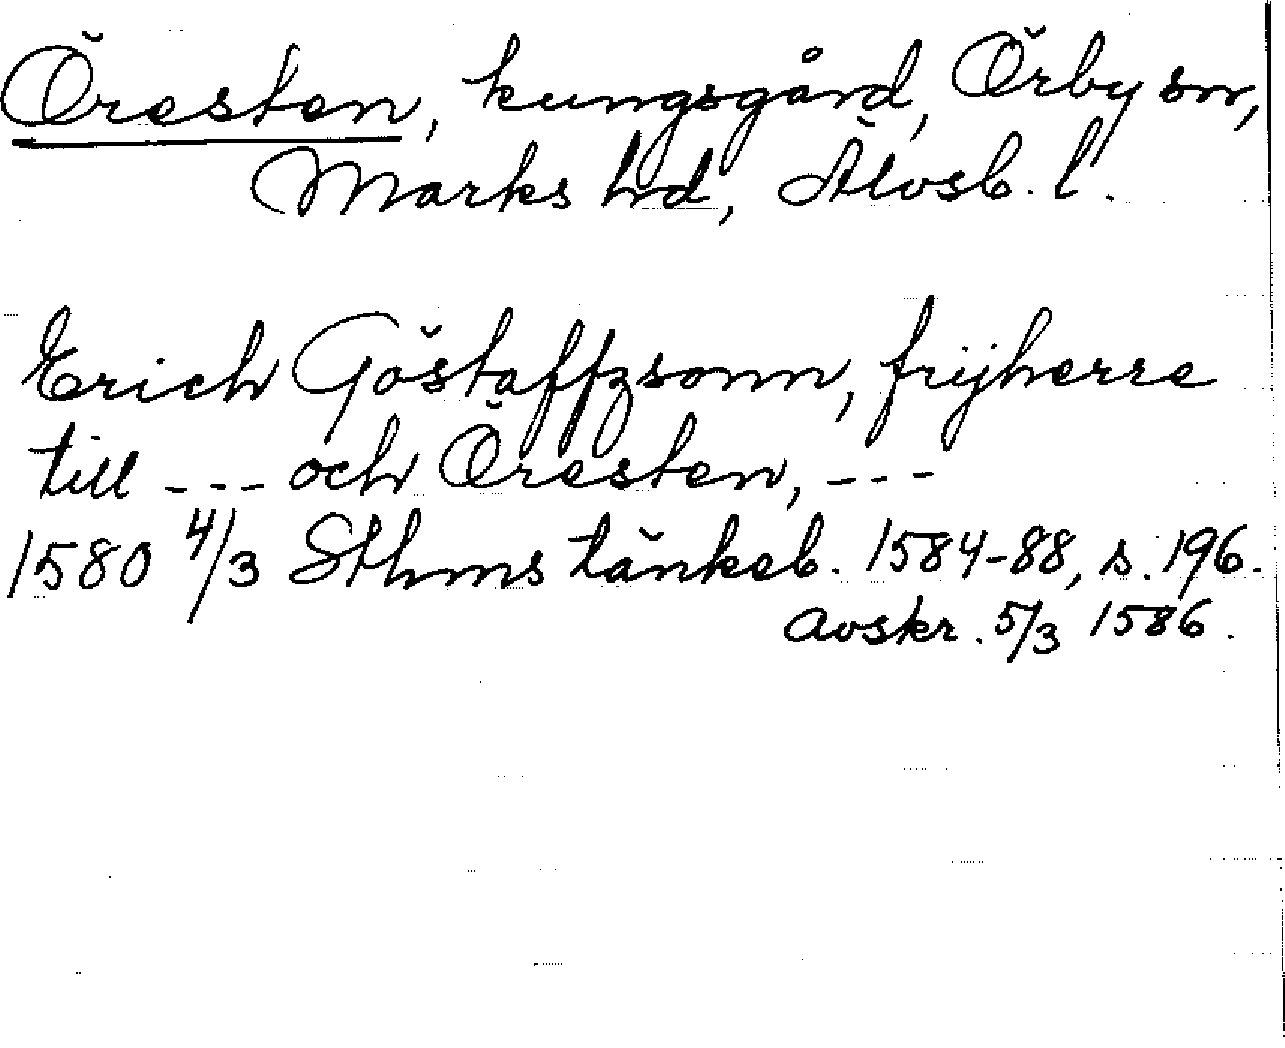 Öresten, kungsgård, Örby sn,
Marks hd, Älvsb. l.
Erich Göstaffzsonn, frijherre
till --- och Öresten, ---
1580 4/3 Sthms tänkeb. 1584-88, s. 196.
Avskr. 5/3 1586.